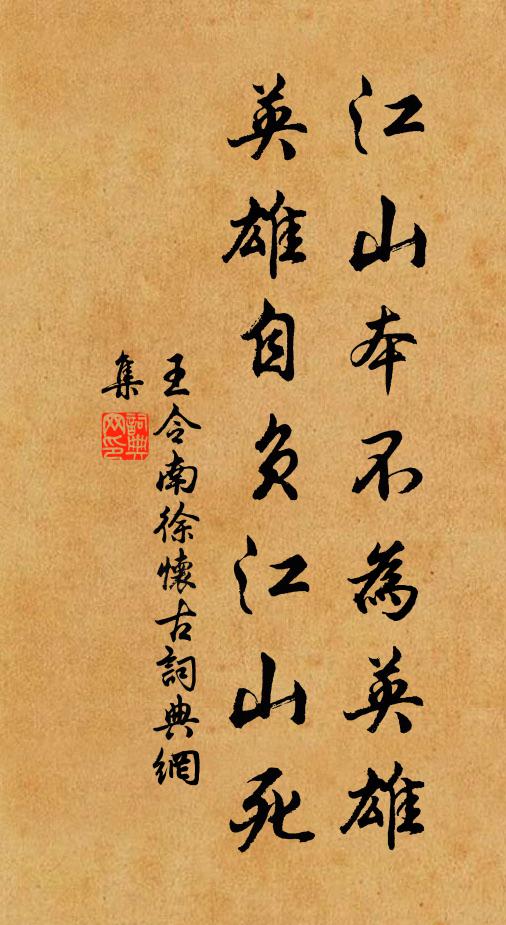 江山本不為英雄
英雄自負江山死
王令南徐懷古詞典網
集
詞典
网印